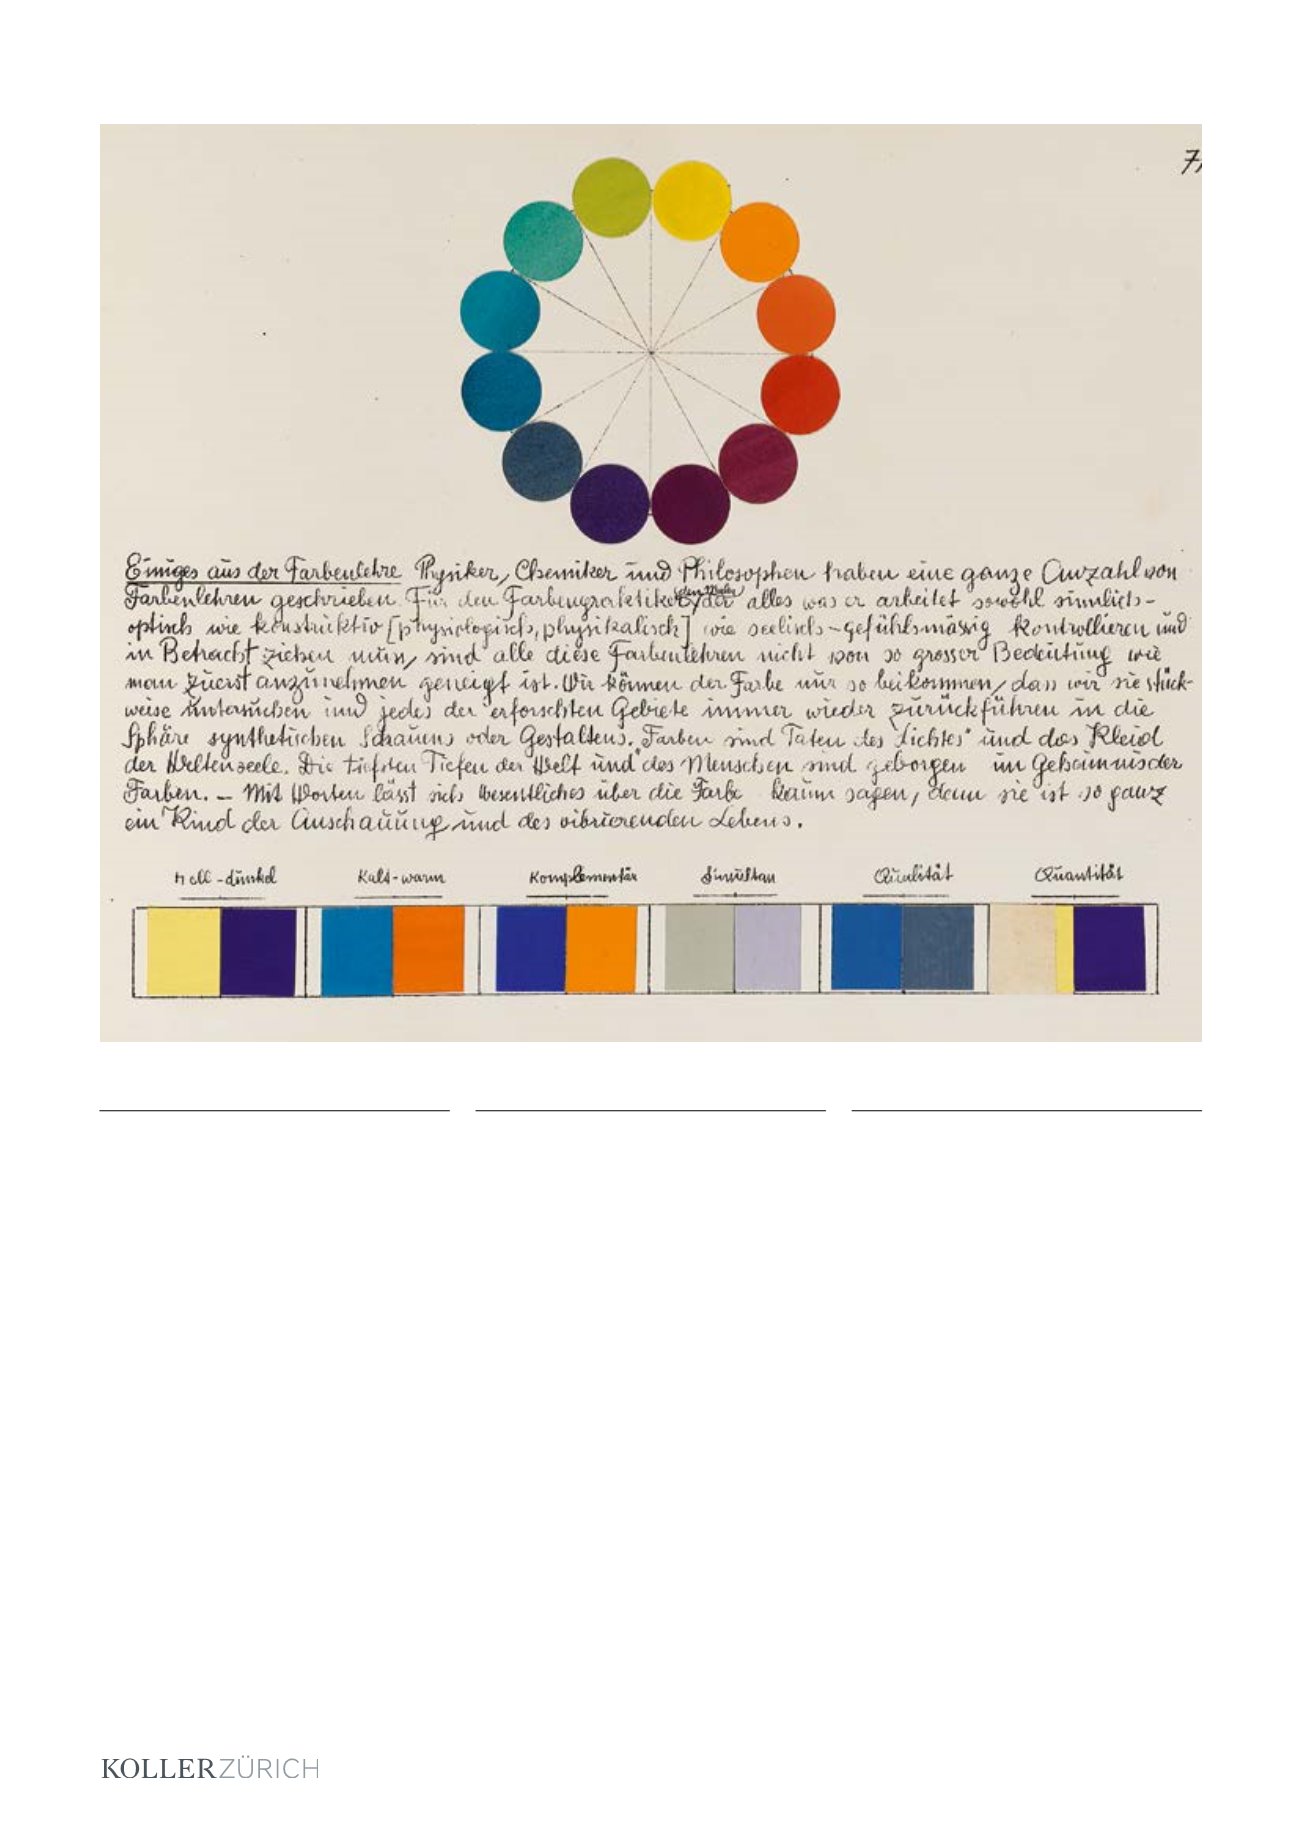 7
Einiges aus der Farbenlehre Physiker, Chemiker und Philosophen haben eine ganze Anzahl von
Farbenlehren geschrieben. Für den Farbenpraktiker, den Maler, der alles was er arbeitet sowohl sinnlich-
optisch wie konstruktiv [physiologisch, physikalisch] wie seelisch-gefühlsmässig kontrollieren und
in Betracht ziehen muss, sind alle diese Farbenlehren nicht von so grosser Bedeutung wie
man zuerst anzunehmen geneigt ist. Wir können der Farbe nur so beikommen, dass wir sie stück-
weise untersuchen und jedes der erforschten Gebiete immer wieder zurückführen in die
Sphäre synthetischen Schauens oder Gestaltens. Farben sind Taten des Lichtes und das Kleid
der Weltenseele. Die tiefsten Tiefen der Welt und des Menschen sind geborgen im Geheimnis der
Farben. – Mit Worten lässt sich Wesentliches über die Farbe kaum sagen, denn sie ist so ganz
ein Kind der Anschauung und des vibrierenden Lebens.
Hell-dunkel Kalt-warm Komplementär Simultan Qualität Quantität
KOLLERZÜRICH